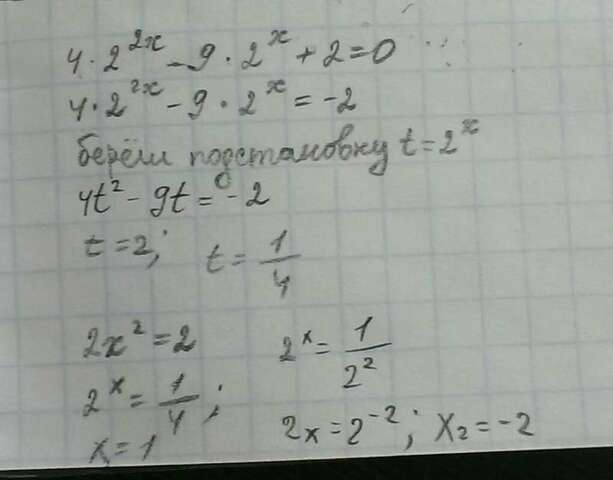 4 · 2^{2x} - 9 · 2^x + 2 = 0
4 · 2^{2x} - 9 · 2^x = -2
берём подстановку t = 2^x
4t² - 9t = -2
t = 2; t = 1/4
2x² = 2 2^x = 1/2²
2^x = 1/4; 2x = 2^{-2}; x₂ = -2
x = 1